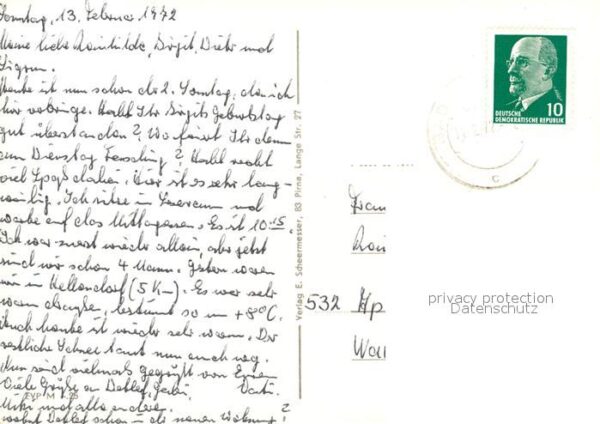 Sonntag, 13. Februar 1972
Meine liebe Raintilde, Birgit, Dieter und
Heute ist nun schon der 2. Sonntag, den ich
hier verbringe. Habt Ihr Birgits Geburtstag
gut überstanden? Wo feiert Ihr denn
am Dienstag Fasching? Habt recht
viel Spaß dabei. Hier ist es sehr lang-
weilig. Ich sitze im und
warte auf das Mittagessen. Es ist 10.15.
Ich war zuerst wieder allein, aber jetzt
sind wir schon 4 Mann. Gestern waren
wir in Hellendorf (5 Km). Es war sehr
warm draußen, bestimmt so um +8°C.
Auch heute ist wieder sehr warm. Der
restliche Schnee taut nun auch weg.
Nun seid vielmals gegrüßt von Euren
Viele Grüße an Detlef, Vati.
und alle anderen.
wohnt Detlef schon in der neuen Wohnung?
EVP M -,25
Verlag E. Scheermesser, 83 Pirna, Lange Str. 27
10
DEUTSCHE
DEMOKRATISCHE REPUBLIK
c
Frau
Rain
532 Ap
privacy protection
Datenschutz